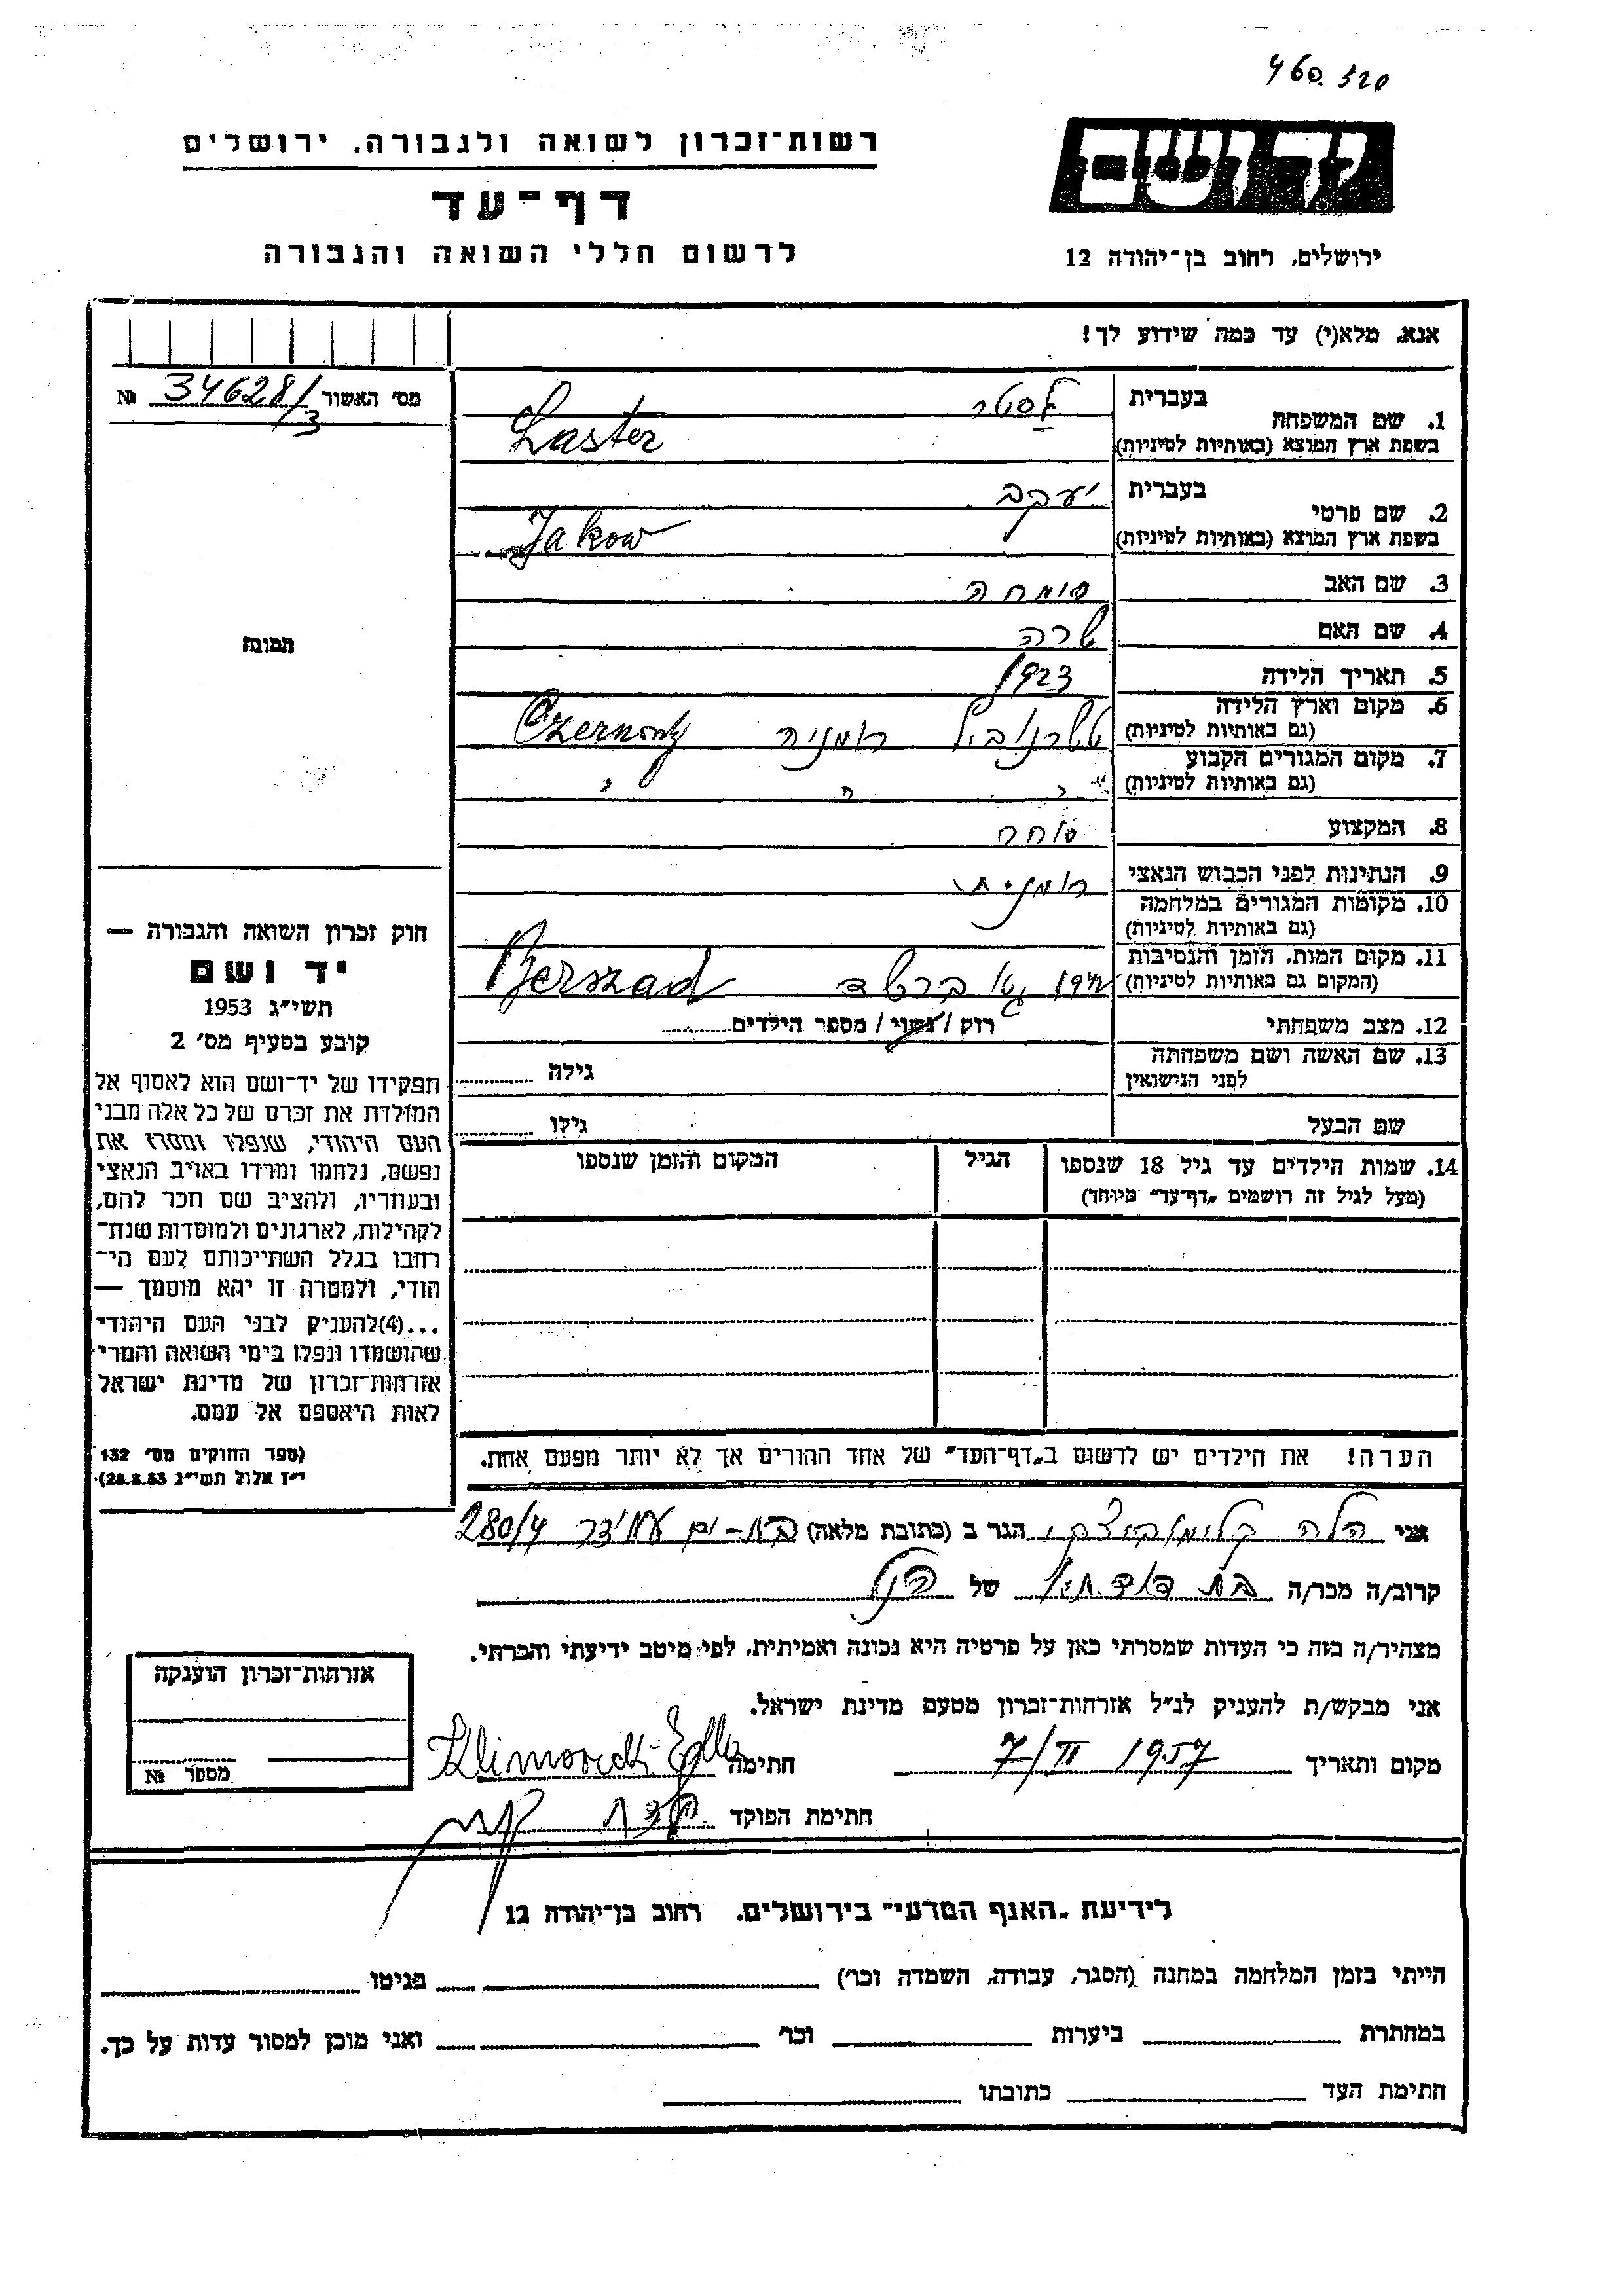 460.520
יד ושם
רשות־זכרון לשואה ולגבורה, ירושלים
דף־עד
לרשום חללי השואה והגבורה
ירושלים, רחוב בן־יהודה 12
אנא, מלא(י) עד כמה שידוע לך!
מס' האשור 34628/3 №
1. שם המשפחה
בעברית לסטר
בשפת ארץ המוצא (באותיות לטיניות) Laster
2. שם פרטי
בעברית יעקב
בשפת ארץ המוצא (באותיות לטיניות) Jakow
3. שם האב שמחה
4. שם האם שרה
5. תאריך הלידה 1923
6. מקום וארץ הלידה
(גם באותיות לטיניות) רומניה
7. מקום המגורים הקבוע
(גם באותיות לטיניות) " " "
8. המקצוע סוחר
9. הנתינות לפני הכבוש הנאצי רומנית
10. מקומות המגורים במלחמה
(גם באותיות לטיניות)
11. מקום המות, הזמן והנסיבות
(המקום גם באותיות לטיניות) גטו ברשד Berszad
12. מצב משפחתי רוק / נשוי / מספר הילדים
13. שם האשה ושם משפחתה
לפני הנישואין גילה
שם הבעל גילו
14. שמות הילדים עד גיל 18 שנספו הגיל המקום והזמן שנספו
(מעל לגיל זה רושמים „דף־עד" מיוחד)
הערה! את הילדים יש לרשום ב„דף־העד" של אחד ההורים אך לא יותר מפעם אחת.
תמונה
חוק זכרון השואה והגבורה —
יד ושם
תשי"ג 1953
קובע בסעיף מס' 2
תפקידו של יד־ושם הוא לאסוף אל
המולדת את זכרם של כל אלה מבני
העם היהודי, שנפלו ומסרו את
נפשם, נלחמו ומרדו באויב הנאצי
ובעוזריו, ולהציב שם וזכר להם,
לקהילות, לארגונים ולמוסדות שנח־
רבו בגלל השתייכותם לעם הי־
הודי, ולמטרה זו יהא מוסמך —
...(4)להעניק לבני העם היהודי
שהושמדו ונפלו בימי השואה והמרי
אזרחות־זכרון של מדינת ישראל
לאות היאספם אל עמם.
(ספר החוקים מס' 132
י"ז אלול תשי"ג 28.8.53)
אני הלה קלימוביצקי הגר ב (כתובת מלאה) בת-ים עמידר 280/4
קרוב/ה מכר/ה בת דודתו של הנ"ל
מצהיר/ה בזה כי העדות שמסרתי כאן על פרטיה היא נכונה ואמיתית, לפי מיטב ידיעתי והכרתי.
אני מבקש/ת להעניק לנ"ל אזרחות־זכרון מטעם מדינת ישראל.
מקום ותאריך 7/II 1957 חתימה
חתימת הפוקד
אזרחות־זכרון הוענקה
מספר №
לידיעת „האגף המדעי" בירושלים, רחוב בן־יהודה 12
הייתי בזמן המלחמה במחנה (הסגר, עבודה, השמדה וכר') בגיטו
במחתרת ביערות וכר' ואני מוכן למסור עדות על כך.
חתימת העד כתובתו